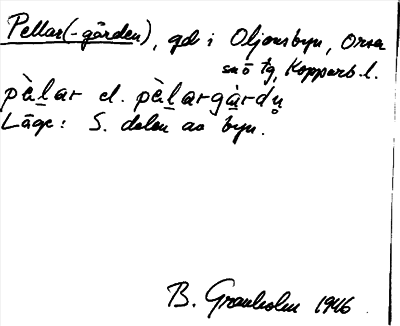 Pellas(-gården), gd i Oljonsbyn, Orsa
sn o tg, Kopparb. l.
pɛ̀lar el. pɛ̀largàrdn̥
Läge: S. delen av byn.
B. Granholm 1946.